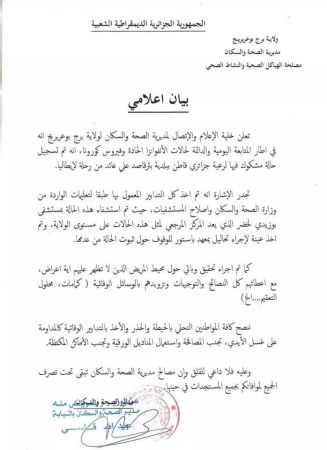 الجمهورية الجزائرية الديمقراطية الشعبية
ولاية برج بوعريريج
مديرية الصحة والسكان
مصلحة الهياكل الصحية والنشاط الصحي
بيان اعلامي
تعلن خلية الإعلام والإتصال لمديرية الصحة والسكان لولاية برج بوعريريج انه
في اطار المتابعة اليومية والدائمة لحالات الأنفلوانزا الحادة وفيروس كورونا، انه تم تسجيل
حالة مشكوك فيها لرعية جزائري قاطن ببلدية بئرقاصد علي عائد من رحلة لإيطاليا.
تجدر الإشارة انه تم اخذ كل التدابير المعمول بها طبقا لتعليمات الواردة من
وزارة الصحة والسكان وإصلاح المستشفيات، حيث تم استشفاء هذه الحالة بمستشفى
بوزيدي لخضر الذي يعد المركز المرجعي لمثل هذه الحالات على مستوى الولاية، وتم
اخذ عينة لإجراء تحاليل بمعهد باستور للوقوف حول ثبوت الحالة من عدمها.
كما تم اجراء تحقيق وبائي حول محيط المريض الذين لا تظهر عليهم اية اعراض،
مع اعطائهم كل النصائح والتوجيهات وتزويدهم بالوسائل الوقائية ( كمامات، محلول
التعقيم....الخ)
ننصح كافة المواطنين التحلي بالحيطة والحذر والأخذ بالتدابير الوقائية كالمداومة
على غسل الأيدي، تجنب المصافحة واستعمال المناديل الورقية وتجنب الأماكن المكتظة.
وعليه فلا داعي للقلق وإن مصالح مديرية الصحة والسكان تبقى تحت تصرف
الجميع لموافاتكم بجميع المستجدات في حينها
مدير الصحة والسكان
مدير الصحة والسكان بالنيابة